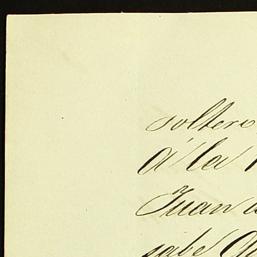 soltero
á la
Juan
sabe